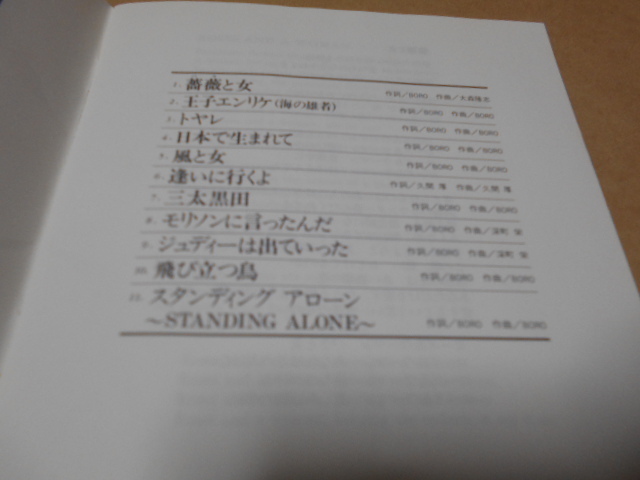 1. 薔薇と女 作詞/BORO 作曲/
2. 王子エンリケ(海の雄者) 作詞/BORO 作曲/BORO
3. トヤレ 作詞/BORO 作曲/BORO
4. 日本で生まれて 作詞/BORO 作曲/BORO
5. 風と女 作詞/BORO 作曲/BORO
6. 逢いに行くよ 作詞/久関 厚 作曲/久関 厚
7. 三太黒田 作詞/BORO 作曲/BORO
8. モリソンに言ったんだ 作詞/BORO 作曲/深町 栄
9. ジュディーは出ていった 作詞/BORO 作曲/深町 栄
10. 飛び立つ鳥 作詞/BORO 作曲/BORO
11. スタンディング アローン
〜STANDING ALONE〜 作詞/BORO 作曲/BORO